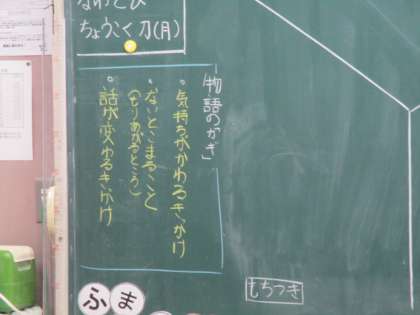 なわとび
ちょうこく刀(月)
「物語のかぎ」
。気持ちがかわるきかけ
。ないとこまること
(もりあがるところ)
。話が変わるきかけ
もちつき
ふま